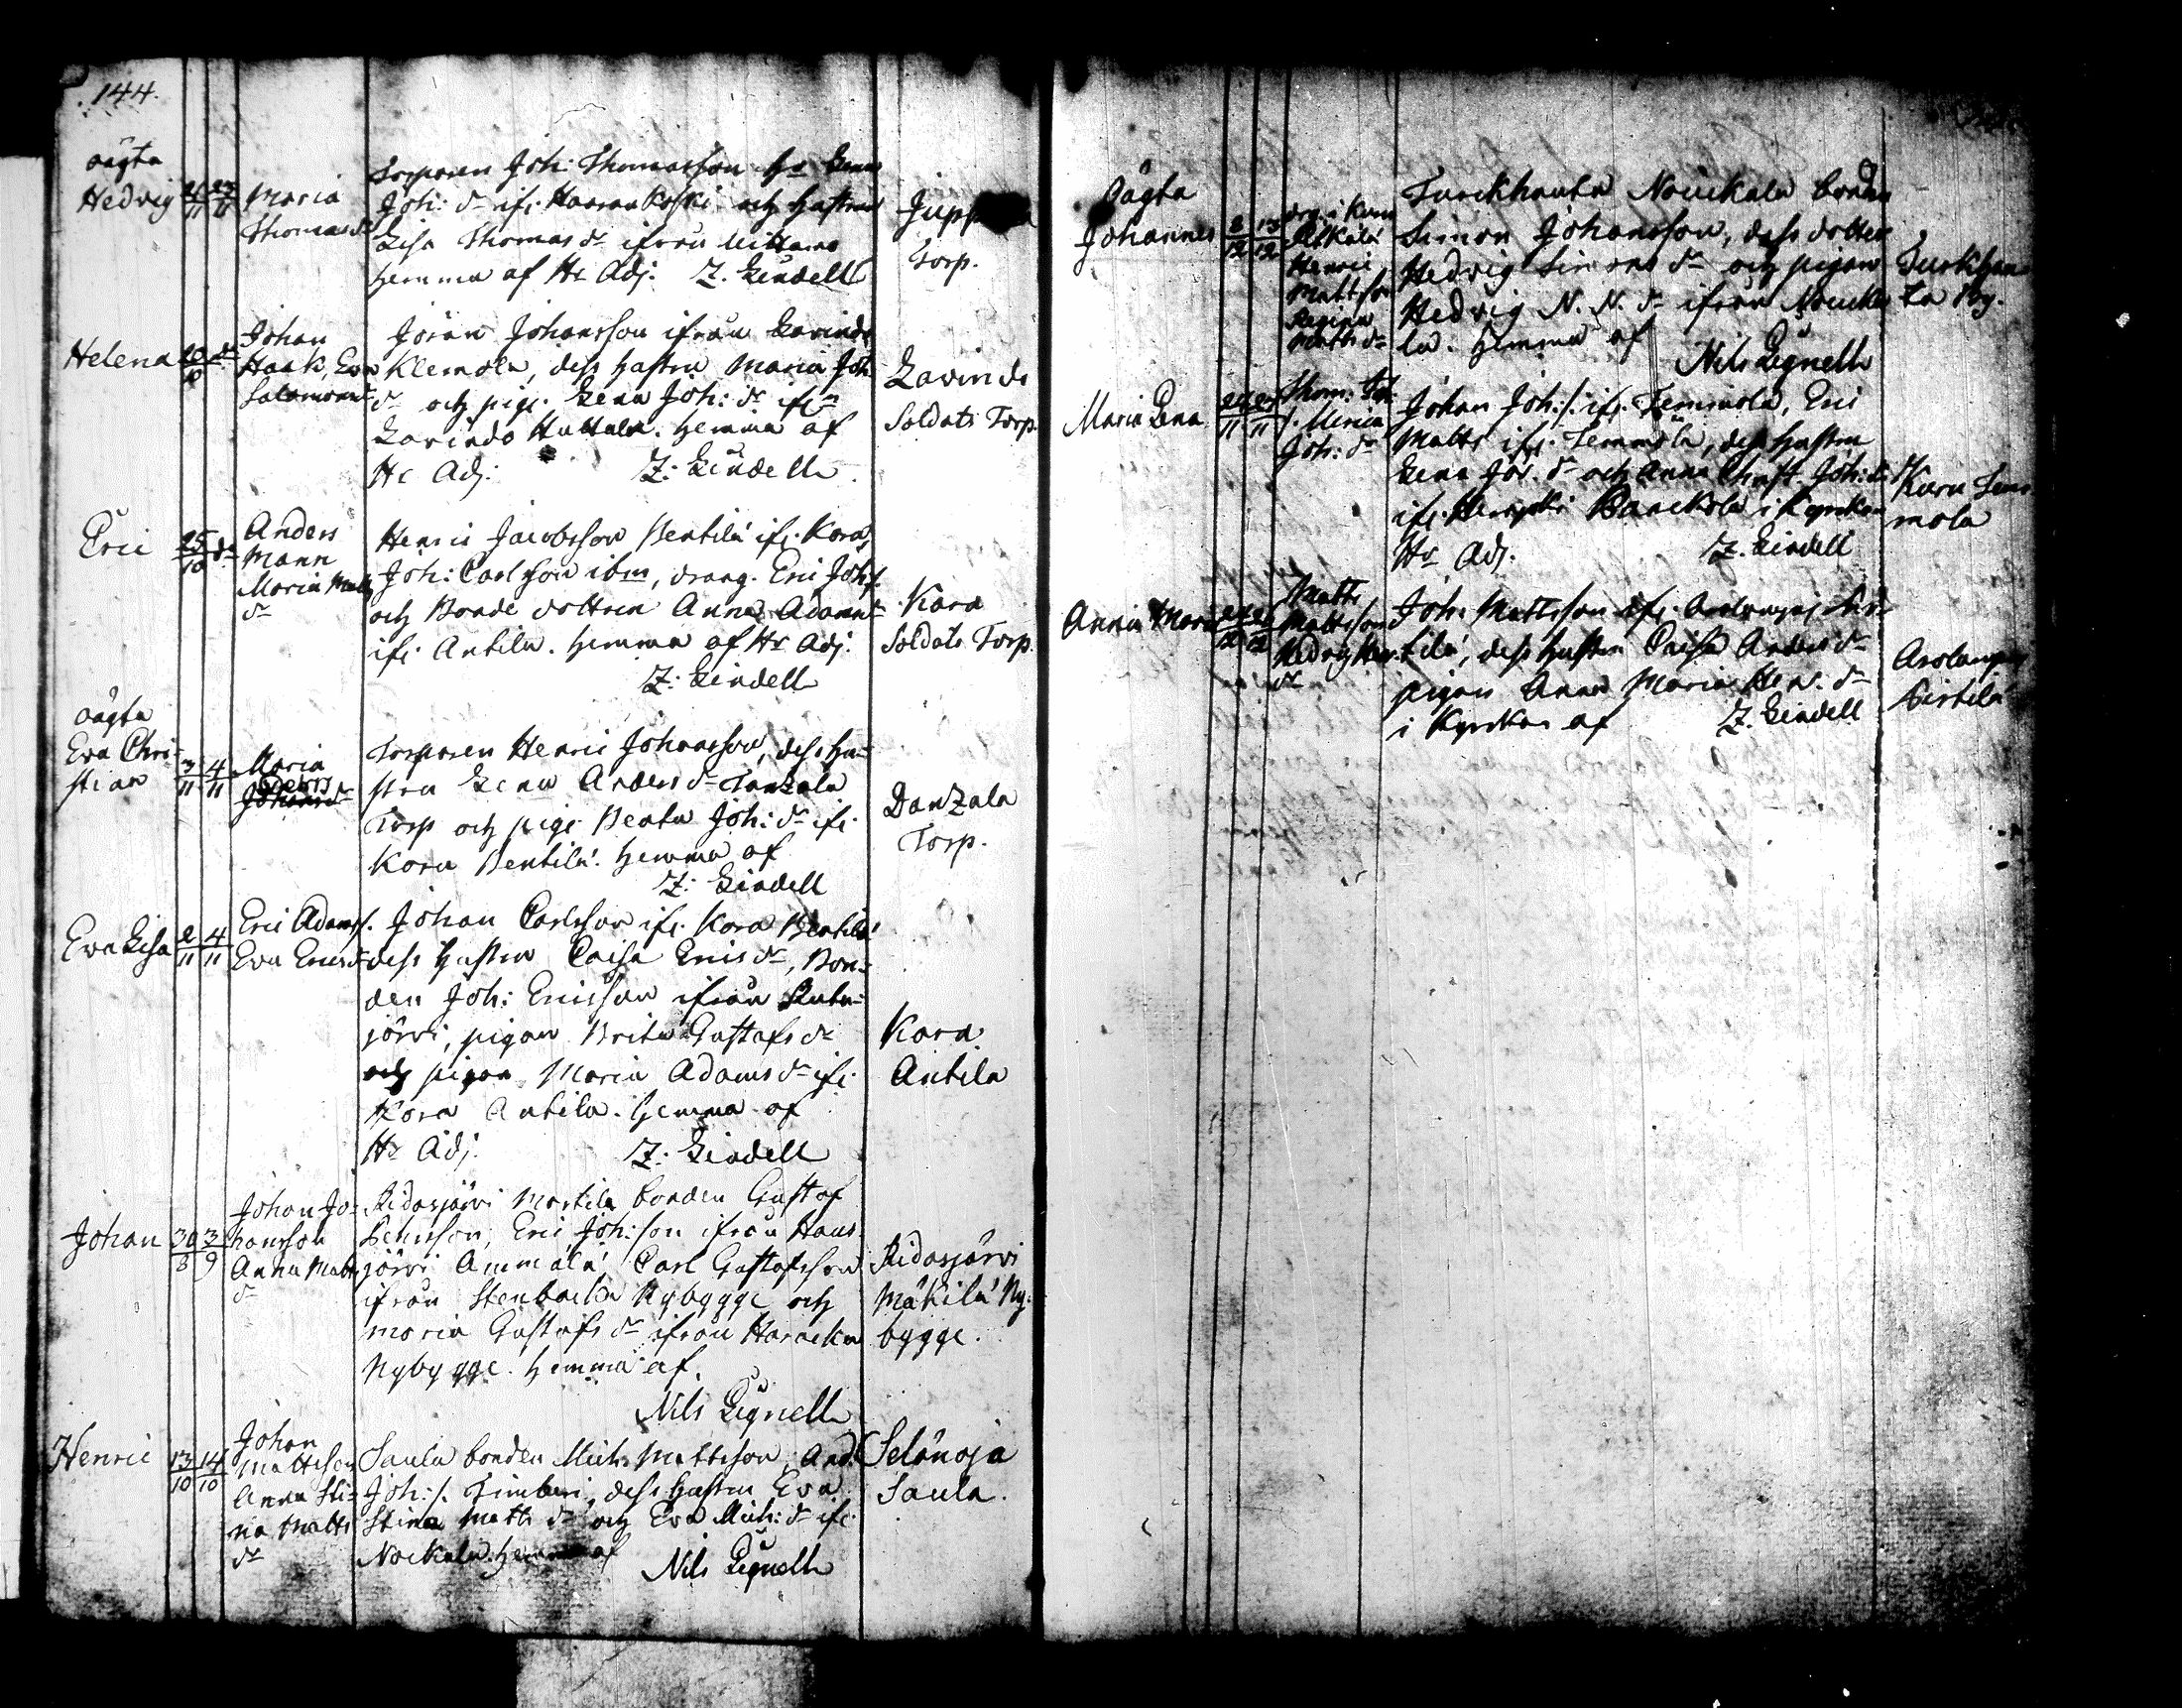 144.
oägta
Hedvig 21/11 23/11
Maria
Thomas dr
Torparen Joh: Thomasson Hr
Joh: dr ifr. Haarankoski och hustrun
Lisa Thomas dr ifrån
hemma af Hr Adj. Z. Lindell
Torp.
Helena 20/10 dr
Johan
Haak, Eva
Salomons dr
Jöran Johansson ifrån Lavinde
Klemola, dess hustru Maria Joh:
dr och pig. Lena Joh: dr ifrn
Lavindo Huttala. hemma af
Hr Adj. Z: Lindell
Lavindo
Soldats Torp
Eric 25/10 dr
Anders
Mann
Maria Matts
dr
Henric Jacobsson Pentilä ifr. Kora,
Joh: Carlsson ibm, dräng. Eric Joh: s.
och Bonde dottren Anna Adams dr
ifr. Antila. hemma af Hr Adj.
Z: Lindell
Kora
Soldats Torp.
oägta
Eva Chri-
stian 3/11 4/11
Maria
Torparen Henric Johansson, dess hu-
stru Lena Anders dr Tanzala
Torp och pig: Beata Joh: dr ifr.
Kora Pentilä. hemma af
Z: Lindell
Danzala
Torp.
Eva Lisa 2/11 4/11
Eric Adams s.
Eva Erics dr
Johan Carlsson ifr. Kora Pentilä
dess hustru Caisa Erics dr, Bon-
den Joh: Ericsson ifrån
järvi, pigan Brita Gustafs dr
och pigan Maria Adams dr ifr.
Kora Antila. hemma af
Hr Adj. Z: Lindell
Kora
Antila
Johan 30/8 3/9
Johan Jo-
hansson
Anna Matts
dr
Ridasjärvi Martila bonden Gustaf
Eric Joh: son ifrån Haus
järvi Ammälä Carl Gustafsson
ifrån Stenbacka Nybygge och
Maria Gustafs dr ifrån
Nybygge. hemma af.
Nils Lignell
Ridasjärvi
Mäkilä Ny-
bygge.
Henric 13/10 14/10
Johan
Mattsson
Anna Sti-
na Matts
dr
Saula bonden Mich: Mattsson, And:
Joh: s. Timberi, dess hustru Eva
Stina Matts dr och Eva Mich: dr ifr.
Nockala. hemma af
Nils Lignell
Selänoja
Saula.
Oägta
Johannes 8/12 13/12
Henric
Mattsson
Regina
Matts dr
Turckhauta Nouckala bonden
Simon Johansson, dess dotter
Hedvig Simons dr och pigan
Hedvig N. N. dr ifrån Noucka
la. hemma af
Nils Lignell
Turkhau
ta By.
Maria Lena
Thom: Joh:
s. Maria
Joh: dr
Johan Joh: s. ifr. Temmola, Eric
Matts ifr. Temmola, dess hustru
Lena Jör. dr och Anna Christ. Joh: dr
ifr. i Kyrkan
Hr Adj. Z. Lindell
Karu Tem
mola
Anna Maria
Matts
Mattsson
Hedvig
dr
Joh: Mattsson ifr.
tilä, dess hustru Caisa Anders dr
pigan Anna Maria Hen. dr
i Kyrkan af Z. Lindell